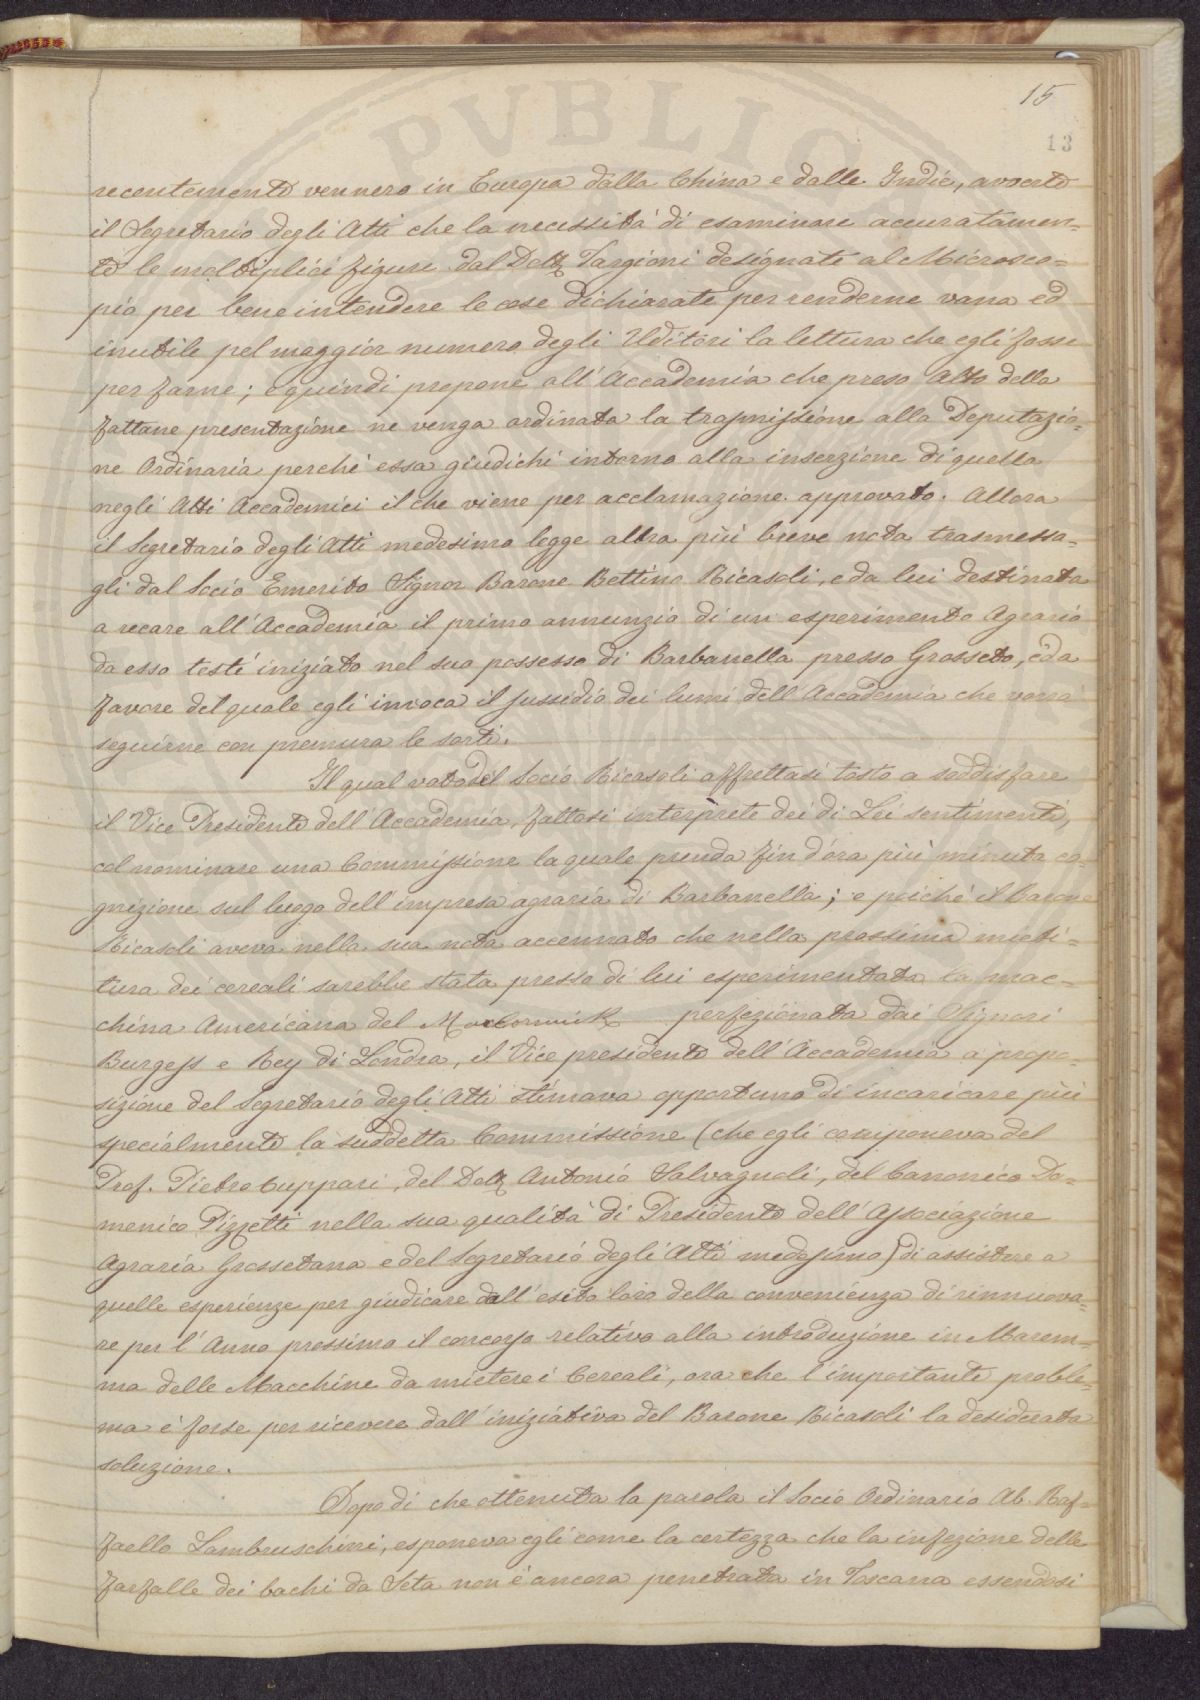 PVBLIC
15
13
recentemente vennero in Europa dalla China e dalle Indie, avverte
il Segretario degli Atti che la necessità di esaminare accuratamen-
te le molteplici figure dal Dott. Targioni designate al Microsco-
pio per bene intendere le cose dichiarate per renderne vana ed
inutile pel maggior numero degli Uditori la lettura che egli fosse
per farne; e quindi propone all'Accademia che preso Atto della
fattane presentazione ne venga ordinata la trasmissione alla Deputazio-
ne Ordinaria perchè essa giudichi intorno alla inserzione di quella
negli Atti Accademici il che viene per acclamazione approvato. Allora
il Segretario degli Atti medesimo legge altra più breve nota trasmessa-
gli dal Socio Emerito Signor Barone Bettino Ricasoli, e da lui destinata
a recare all'Accademia il primo annunzio di un esperimento Agrario
da esso testè iniziato nel suo possesso di Barbanella presso Grosseto, e da
favore del quale egli invoca il sussidio dei lumi dell'Accademia che vorrà
seguirne con premura le sorti.
Il qual voto del Socio Ricasoli affrettasi tosto a soddisfare
il Vice Presidente dell'Accademia, fattosi interprete dei di Lei sentimenti,
col nominare una Commissione la quale prenda fin d'ora più minuta co-
gnizione sul luogo dell'impresa agraria di Barbanella; e poichè il Barone
Ricasoli aveva nella sua nota accennato che nella prossima mieti-
tura dei cereali sarebbe stata presso di lui esperimentata la mac-
china Americana del MacCormick perfezionata dai Signori
Burgess e Key di Londra, il Vice presidente dell'Accademia a propo-
sizione del Segretario degli Atti stimava opportuno di incaricare più
specialmente la suddetta Commissione (che egli componeva del
Prof. Pietro Cuppari, del Dott. Antonio Salvagnoli, del Canonico Do-
menico Pizzetti nella sua qualità di Presidente dell'Associazione
Agraria Grossetana e del Segretario degli Atti medesimo) di assistere a
quelle esperienze per giudicare dall'esito loro della convenienza di rinnuova-
re per l'Anno prossimo il concorso relativo alla introduzione in Marem-
ma delle Macchine da mietere i Cereali, ora che l'importante proble-
ma è forse per ricevere dall'iniziativa del Barone Ricasoli la desiderata
soluzione.
Dopo di che ottenuta la parola il Socio Ordinario Ab. Raf-
faello Lambruschini, esponeva egli come la certezza che la infezione delle
farfalle dei bachi da Seta non è ancora penetrata in Toscana essendosi